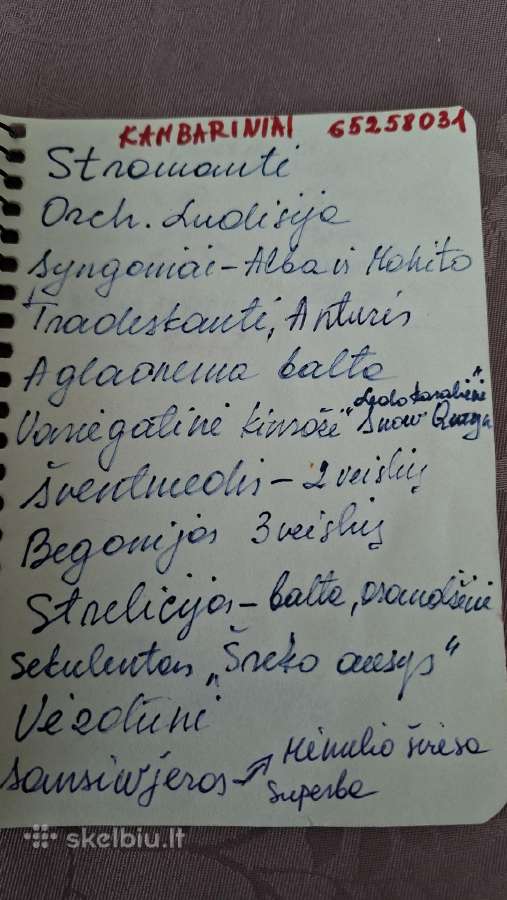 KAMBARINIAI 65258031
Stromanti
Orch. Ludisija
Syngoniai - Alba ir Mohito
Tradeskanti, Anturis
Aglaonema balta
Variegatinė kinrožė "Ledo karalienė"
Snow Queen
Šventmedis - 2 veislių
Begonijos 3 veislių
Strelicijos - balta, oranžinė
Sekulentas „Šreko ausys"
Vėzdūnė
Sansiwjeros - Mėnulio šviesa
Superba
skelbiu.lt